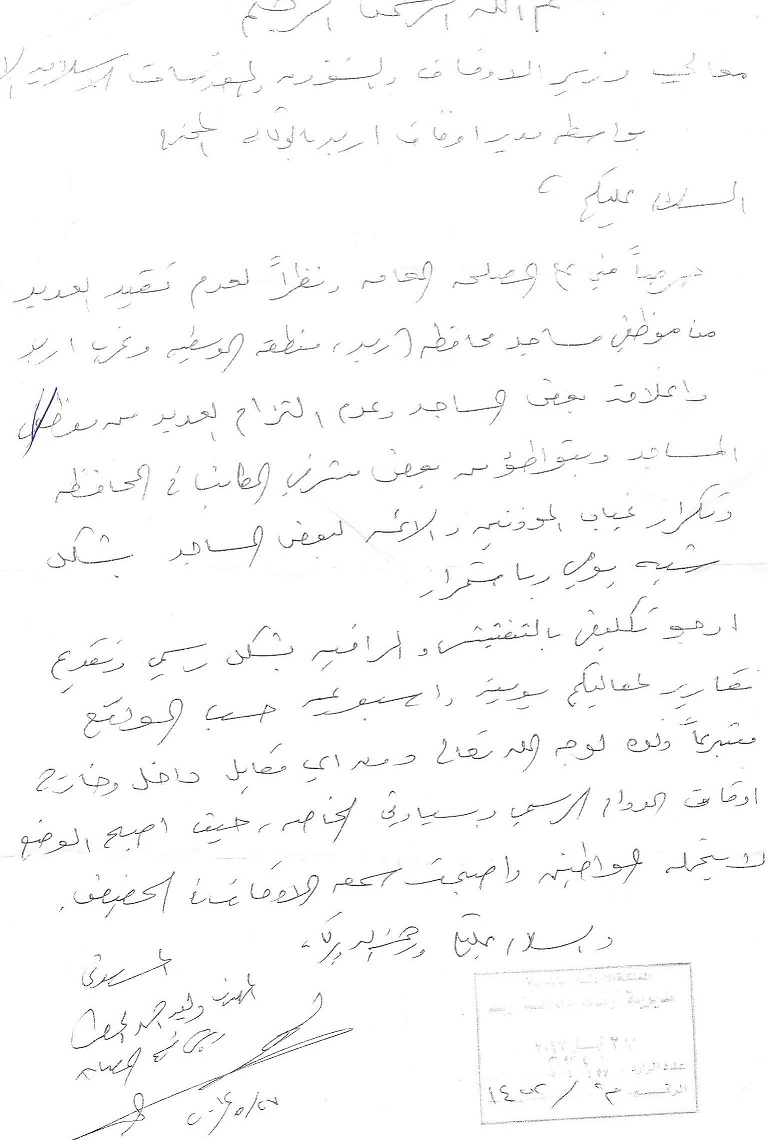 بسم الله الرحمن الرحيم
معالي وزير الاوقاف والشؤون والمقدسات الاسلامية
بواسطة مدير اوقاف اربد بالوكالة المحترم
السلام عليكم ،
حرصاً مني على المصلحة العامة ونظراً لعدم تقيد العديد
من موظفي مساجد محافظة اربد، منطقة الوسطية وغرب اربد
واغلاق بعض المساجد وعدم التزام العديد من موظفي
المساجد وبتواطؤ من بعض مشرفي المكاتب في المحافظة
وتكرار غياب المؤذنين والائمة لبعض المساجد بشكل
شبه يومي وباستمرار
ارجو تكليفي بالتفتيش والمراقبة بشكل رسمي وتقديم
تقارير لمعاليكم يومية واسبوعية حسب الواقع
متبرعاً وذلك لوجه الله تعالى ودون اي مقابل داخل وخارج
اوقات الدوام الرسمي وبسيارتي الخاصة، حيث اصبح الوضع
لا يتحمله المواطنين واصبحت سمعة الاوقاف في الحضيض.
والسلام عليكم ورحمة الله وبركاته
المهندس وليد احمد
رئيس قسم الصيانة
المملكة الاردنية الهاشمية
مديرية اوقاف محافظة اربد
عدد الاوراق
الرقم م / ١٤٥٢